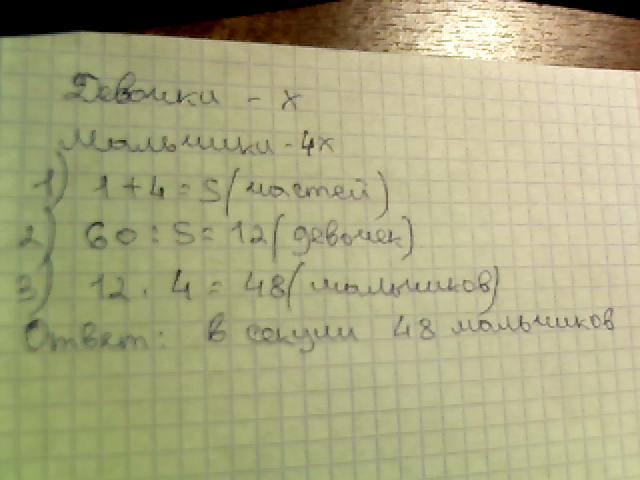 Девочки - х
Мальчики - 4х
1) 1 + 4 = 5 (частей)
2) 60 : 5 = 12 (девочек)
3) 12 . 4 = 48 (мальчиков)
Ответ: в секции 48 мальчиков